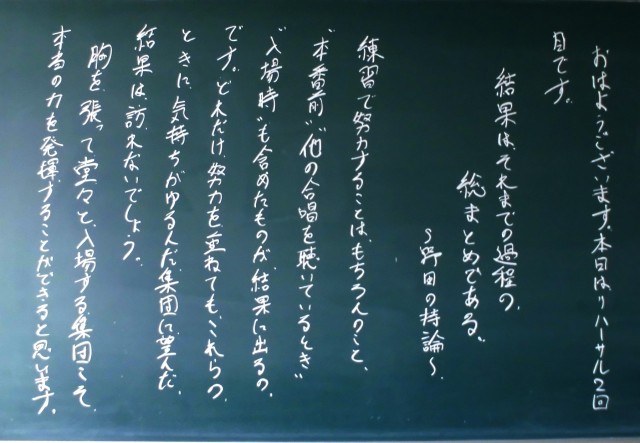 おはようございます。本日はリハーサル2回
目です。
結果はそれまでの過程の、
総まとめである。
〜野田の持論〜
練習で努力することは、もちろんのこと、
"本番前" "他の合唱を聴いているとき"
"入場時"も含めたものが、結果に出るの
です。どれだけ、努力を重ねても、これらの
ときに、気持ちがゆるんだ集団に望んだ
結果は、訪れないでしょう。
胸を、張って堂々と、入場する集団こそ、
本当の力を発揮することができると思います。